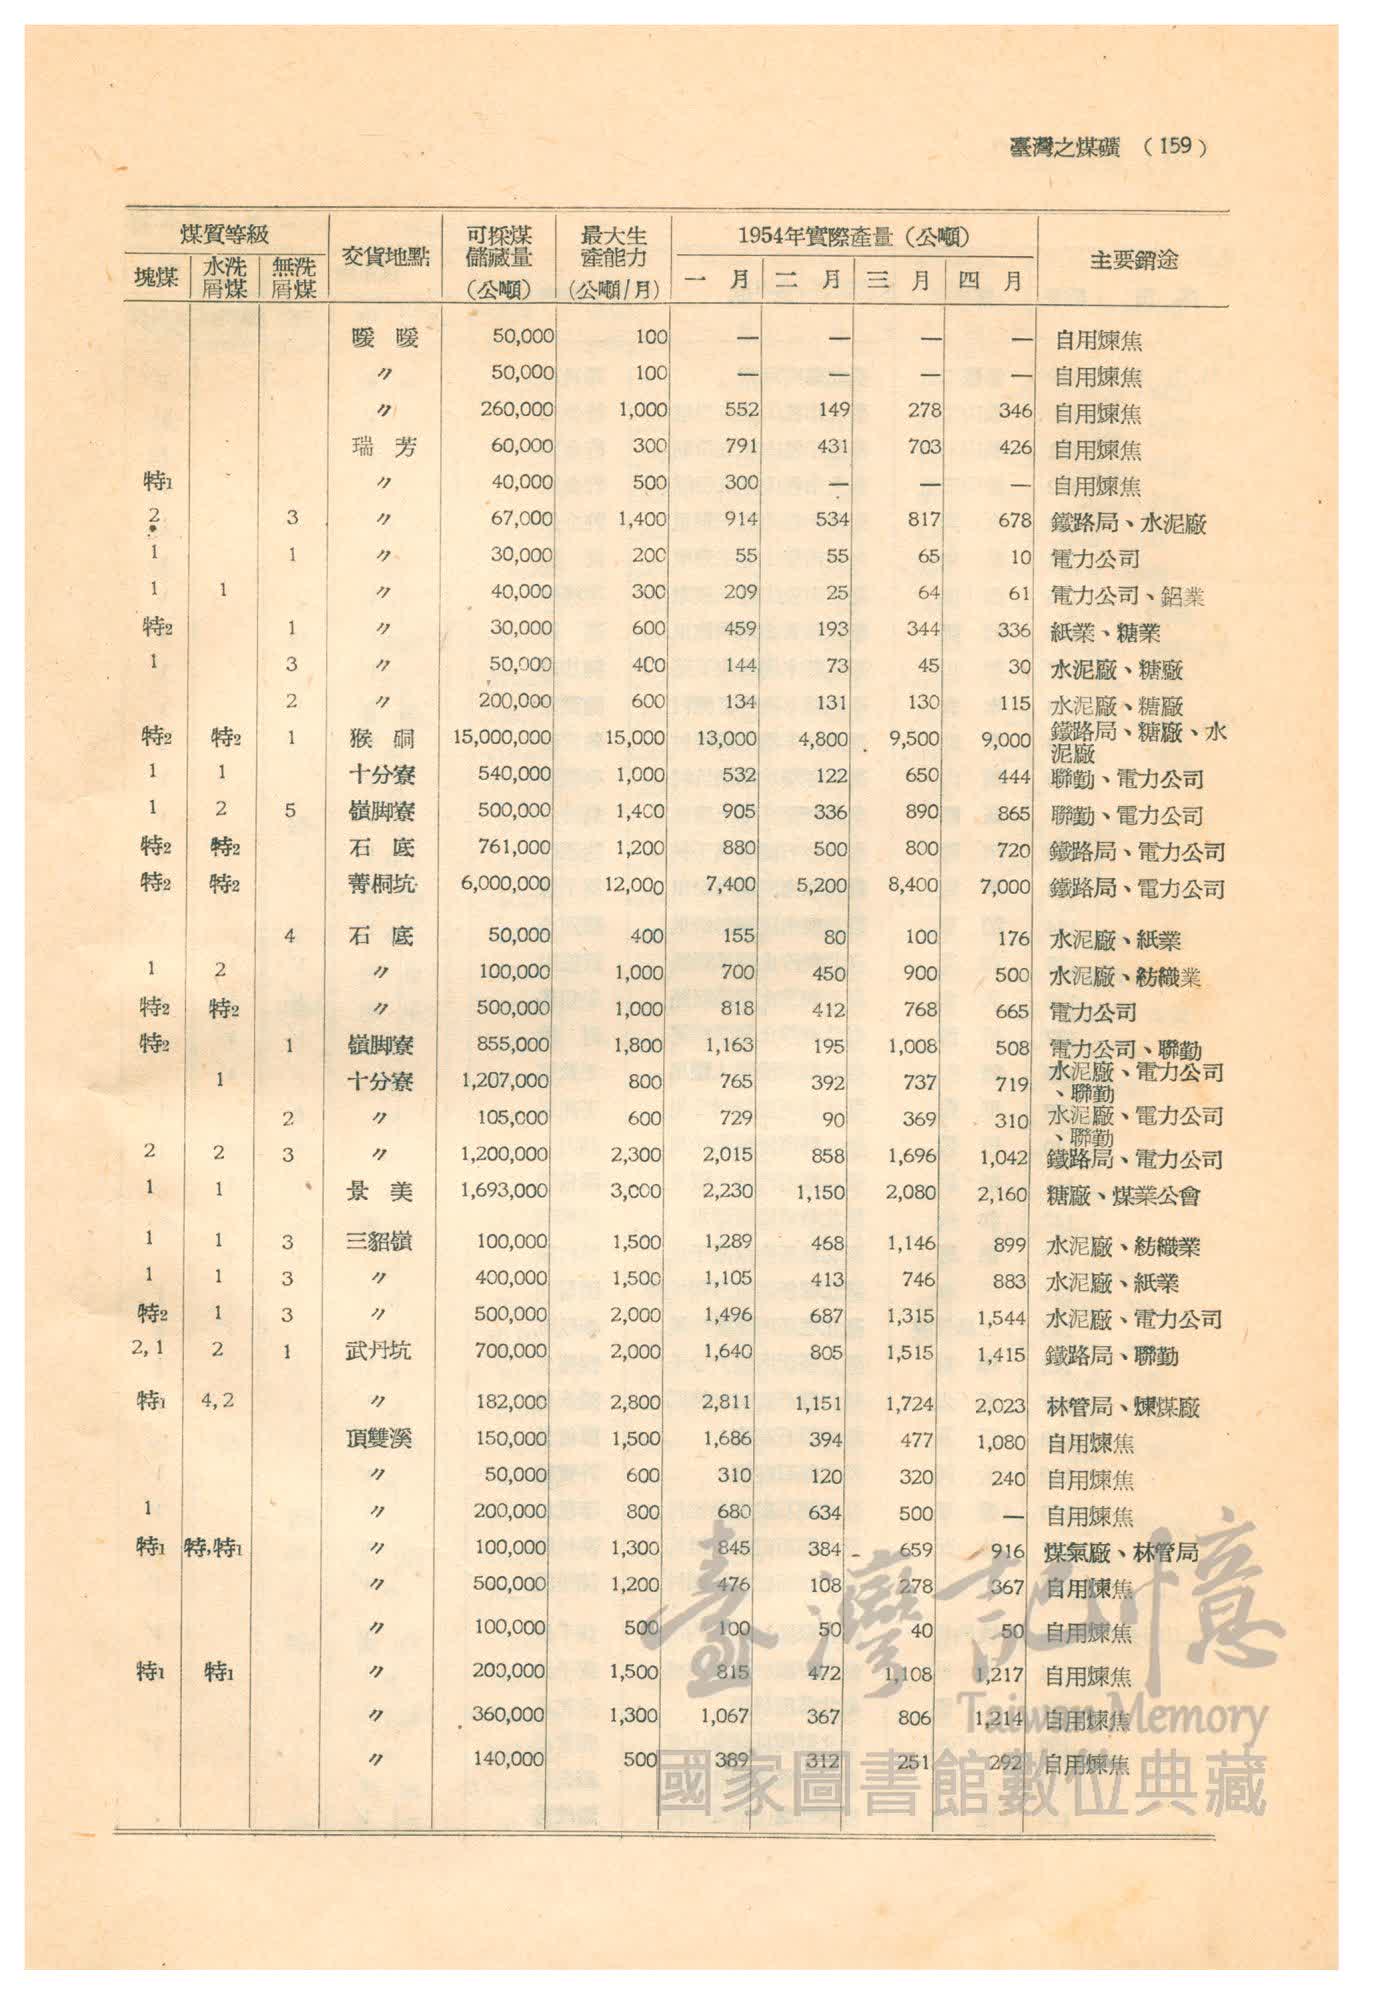 臺灣之煤礦 （159）
煤質等級 交貨地點 可採煤儲藏量（公噸） 最大生產能力（公噸/月） 1954年實際產量（公噸） 主要銷途
塊煤 水洗屑煤 無洗屑煤 一月 二月 三月 四月
暖暖 50,000 100 — — — — 自用煉焦
〃 50,000 100 — — — — 自用煉焦
〃 260,000 1,000 552 149 278 346 自用煉焦
瑞芳 60,000 300 791 431 703 426 自用煉焦
特1 〃 40,000 500 300 — — — 自用煉焦
2 3 〃 67,000 1,400 914 534 817 678 鐵路局、水泥廠
1 1 〃 30,000 200 55 55 65 10 電力公司
1 1 〃 40,000 300 209 25 64 61 電力公司、鋁業
特2 1 〃 30,000 600 459 193 344 336 紙業、糖業
1 3 〃 50,000 400 144 73 45 30 水泥廠、糖廠
2 〃 200,000 600 134 131 130 115 水泥廠、糖廠
特2 特2 1 猴硐 15,000,000 15,000 13,000 4,800 9,500 9,000 鐵路局、糖廠、水泥廠
1 1 十分寮 540,000 1,000 532 122 650 444 聯勤、電力公司
1 2 5 嶺脚寮 500,000 1,400 905 336 890 865 聯勤、電力公司
特2 特2 石底 761,000 1,200 880 500 800 720 鐵路局、電力公司
特2 特2 菁桐坑 6,000,000 12,000 7,400 5,200 8,400 7,000 鐵路局、電力公司
4 石底 50,000 400 155 80 100 176 水泥廠、紙業
1 2 〃 100,000 1,000 700 450 900 500 水泥廠、紡織業
特2 特2 〃 500,000 1,000 818 412 768 665 電力公司
特2 1 嶺脚寮 855,000 1,800 1,163 195 1,008 508 電力公司、聯勤
1 十分寮 1,207,000 800 765 392 737 719 水泥廠、電力公司、聯勤
2 〃 105,000 600 729 90 369 310 水泥廠、電力公司、聯勤
2 2 3 〃 1,200,000 2,300 2,015 858 1,696 1,042 鐵路局、電力公司
1 1 景美 1,693,000 3,000 2,230 1,150 2,080 2,160 糖廠、煤業公會
1 1 3 三貂嶺 100,000 1,500 1,289 468 1,146 899 水泥廠、紡織業
1 1 3 〃 400,000 1,500 1,105 413 746 883 水泥廠、紙業
特2 1 3 〃 500,000 2,000 1,496 687 1,315 1,544 水泥廠、電力公司
2,1 2 1 武丹坑 700,000 2,000 1,640 805 1,515 1,415 鐵路局、聯勤
特1 4,2 〃 182,000 2,800 2,811 1,151 1,724 2,023 林管局、煉煤廠
頂雙溪 150,000 1,500 1,686 394 477 1,080 自用煉焦
〃 50,000 600 310 120 320 240 自用煉焦
1 〃 200,000 800 680 634 500 — 自用煉焦
特1 特,特1 〃 100,000 1,300 845 384 659 916 煤氣廠、林管局
〃 500,000 1,200 476 108 278 367 自用煉焦
〃 100,000 500 100 50 40 50 自用煉焦
特1 特1 〃 200,000 1,500 815 472 1,108 1,217 自用煉焦
〃 360,000 1,300 1,067 367 806 1,214 自用煉焦
〃 140,000 500 389 312 251 292 自用煉焦
臺灣記憶
Taiwan Memory
國家圖書館數位典藏